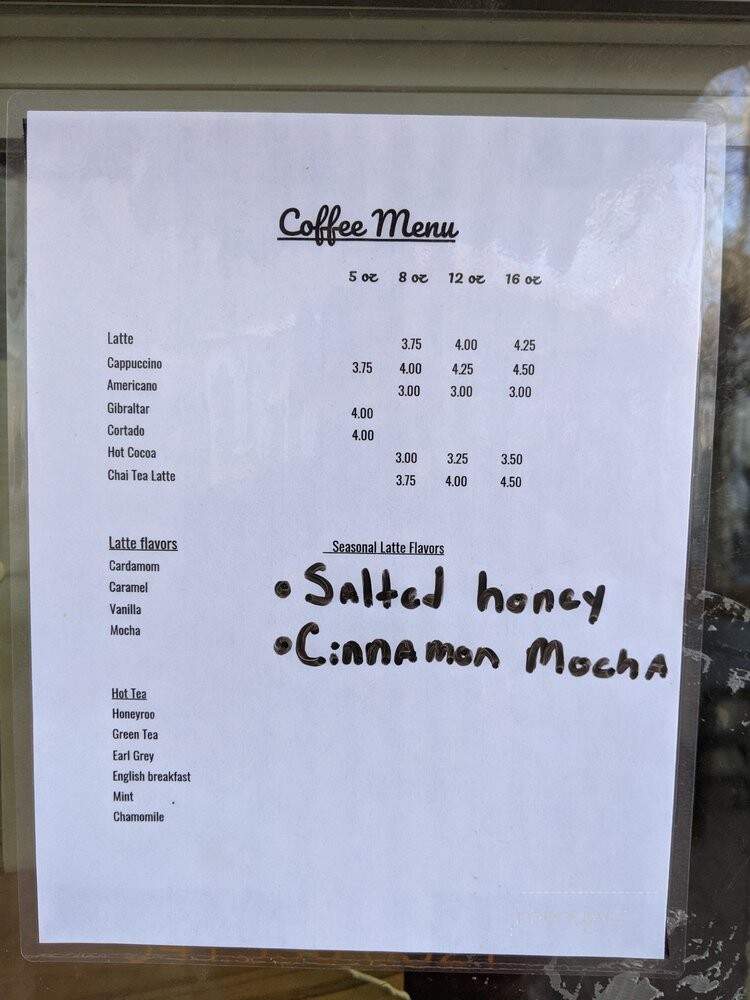 Coffee Menu
5 oz 8 oz 12 oz 16 oz
Latte 3.75 4.00 4.25
Cappuccino 3.75 4.00 4.25 4.50
Americano 3.00 3.00 3.00
Gibraltar 4.00
Cortado 4.00
Hot Cocoa 3.00 3.25 3.50
Chai Tea Latte 3.75 4.00 4.50
Latte flavors
Cardamom
Caramel
Vanilla
Mocha
Seasonal Latte Flavors
• Salted honey
• Cinnamon Mocha
Hot Tea
Honeyroo
Green Tea
Earl Grey
English breakfast
Mint
Chamomile